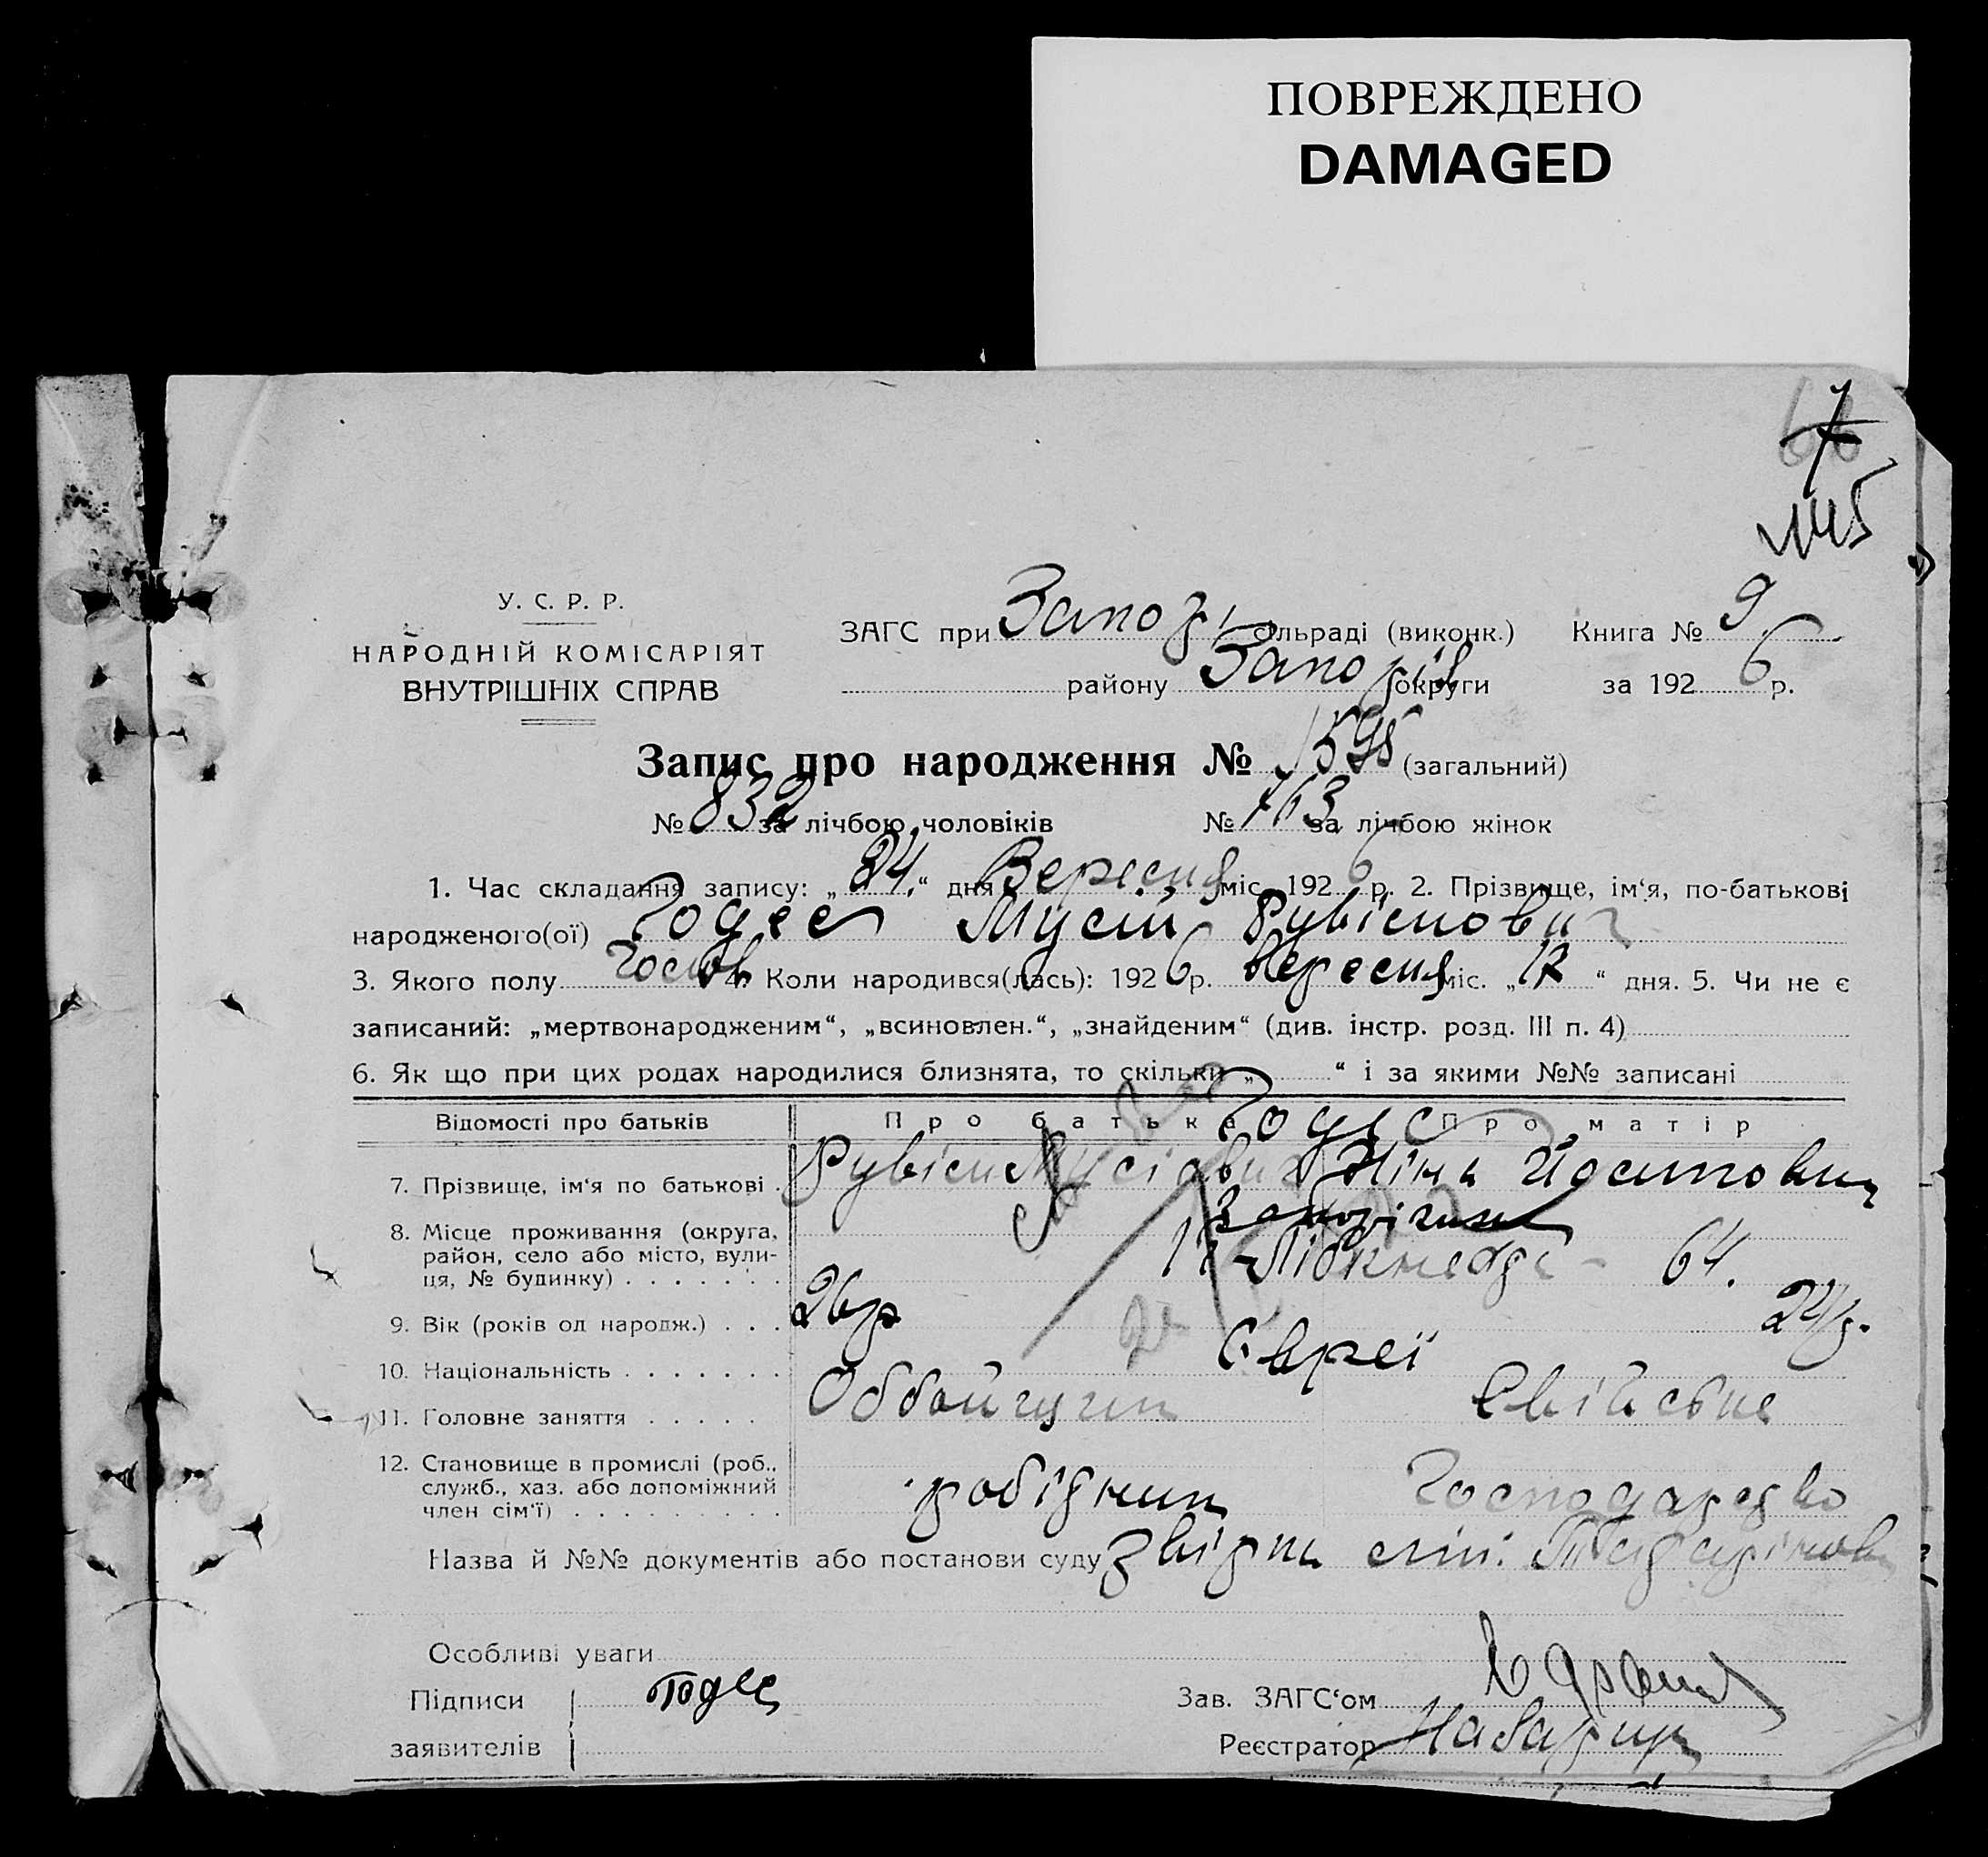 ПОВРЕЖДЕНО
DAMAGED
7
У. С. Р. Р.
НАРОДНІЙ КОМІСАРІЯТ
ВНУТРІШНІХ СПРАВ
ЗАГС при Запоз. сільраді (виконк.) Книга № 9
району Запоріз округи за 1926 р.
Запис про народження № 1595 (загальний)
№ 832 за лічбою чоловіків № 763 за лічбою жінок
1. Час складання запису: „24.“ дня Вересня міс. 1926 р. 2. Прізвище, ім‘я, по-батькові
народженого(ої) Годес Мусій Рувімович
3. Якого полу 4. Коли народився(лась): 1926 р. Вересня міс. „17“ дня. 5. Чи не є
записаний: „мертвонародженим“, „всиновлен.“, „знайденим“ (див. інстр. розд. III п. 4)
6. Як що при цих родах народилися близнята, то скільки „ “ і за якими №№ записані
Відомості про батьків Про батька Про матір
Годес
7. Прізвище, ім‘я по батькові . Рувім Мусієвич Ніна Йосиповна
8. Місце проживання (округа, Запоріжжя
район, село або місто, вули- Лібкнехта - 64.
ця, № будинку) . . . . . . .
9. Вік (років од народж.) . . . 26 р. 24 р.
10. Національність . . . . . . . Євреї
11. Головне заняття . . . . . Оббойщик Свійське
12. Становище в промислі (роб.,
служб., хаз. або допоміжний робідник Господарство
член сім‘ї) . . . . . . . . .
Назва й №№ документів або постанови суду звідка
Особливі уваги
Підписи Годес Зав. ЗАГС‘ом
заявителів Реєстратор